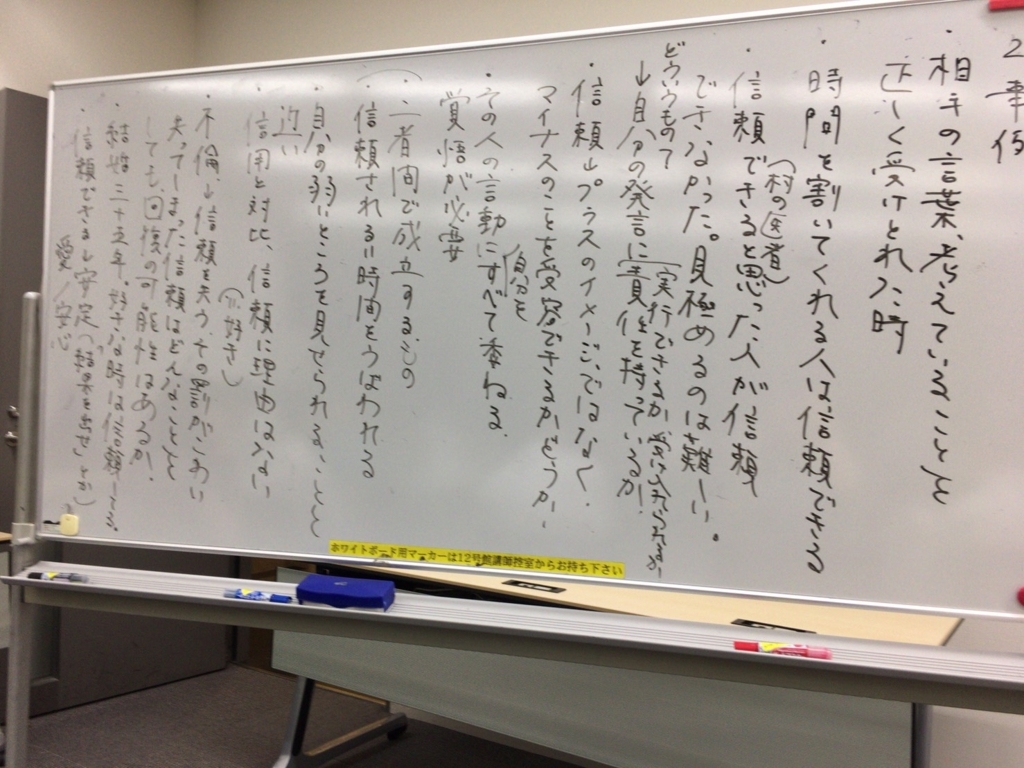 2 事例
・相手の言葉、考えていることを
正しく受けとれた時
・時間を割いてくれる人は信頼できる
(村の医者)
・信頼できると思った人が信頼
できなかった。見極めるのは難しい。
どういうもので
(実行できるか
↓自分の発言に責任を持っているか
・信頼↓プラスのイメージではなく、
マイナスのことを受容できるかどうか
自分を
・その人の言動にすべて委ねる。
覚悟が必要
・二者間で成立するもの
・信頼される=時間をうばわれる
・自分の弱いところを見せられることと
近い
・信用と対比、信頼に理由はない
(=好き)
・不倫↓信頼を失う、その割がこわい
失ってしまった信頼はどんなことを
しても、回復の可能性はあるか。
・結婚三十五年。好きな時は信頼
・信頼できる↓安定(結果を出せ とか)
愛/安心
ホワイトボード用マーカーは12号館講師控室からお持ち下さい